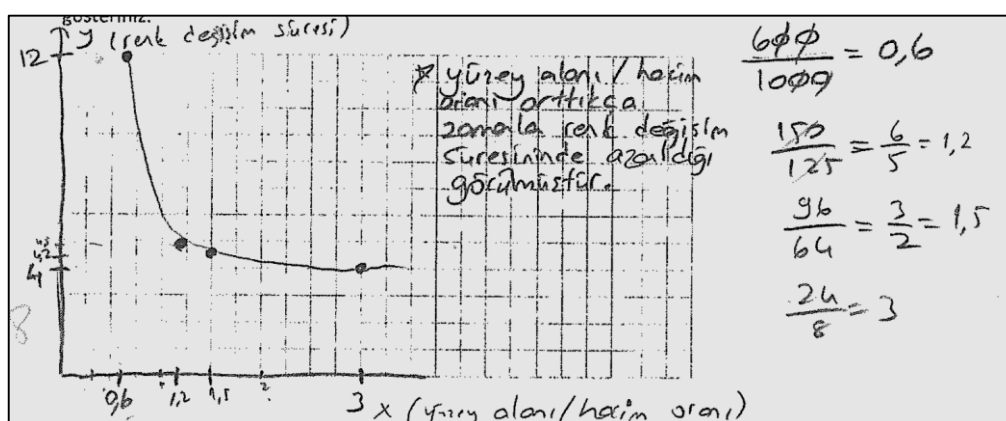 göstériniz.
y (renk değişim süresi)
12
4,2
4
0,6
1,2
1,5
2
3
x (yüzey alanı/hacim oranı)
* yüzey alanı/hacim
oranı arttıkça
zamanla renk değişim
süresininde azaldığı
görülmüştür.
600/1000 = 0,6
150/125 = 6/5 = 1,2
96/64 = 3/2 = 1,5
24/8 = 3